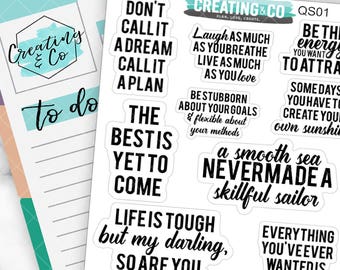 Creating
& Co
to do
DON'T
CALL IT
A DREAM
CALL IT
A PLAN
CREATING&CO
QS01
Laugh AS MUCH
AS YOU BREATHE
LIVE AS MUCH
AS YOU love
BE TH
energy
YOU WANT
TO ATTRA
BE STUBBORN
ABOUT YOUR GOALS
& flexible about
your methods
SOME DAYS
YOU HAVE TO
CREATE YOUR
own sunshin
THE
BEST IS
YET TO
COME
a smooth sea
NEVER MADE A
skillful sailor
LIFE IS TOUGH
but my darling,
SO ARE YOU
EVERYTHING
YOU'VE EVER
WANTED IS